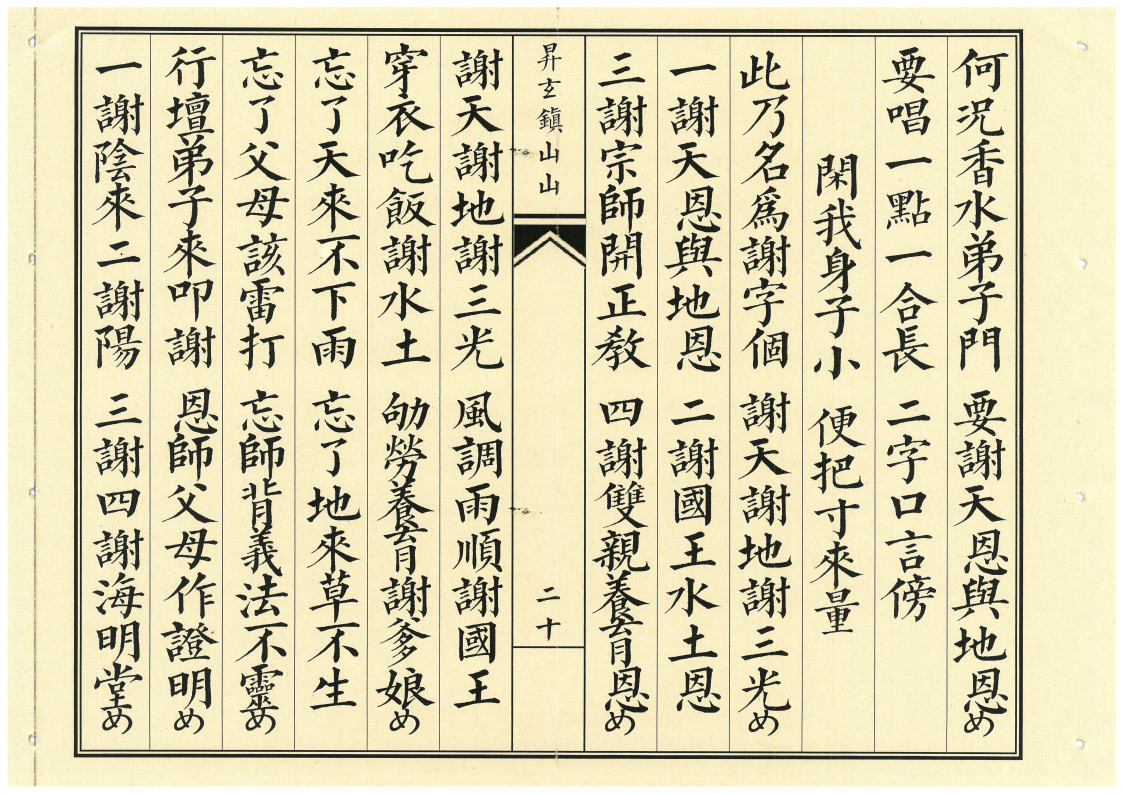 何况香水弟子門　要謝天恩與地恩め
要唱一點一合長　二字口言傍
閑我身子小　便把寸來量
此乃名爲謝字個　謝天謝地謝三光め
一謝天恩與地恩　二謝國王水土恩
三謝宗師開正教　四謝雙親養育恩め
昇玄鎮山山
二十
謝天謝地謝三光　風調雨順謝國王
穿衣吃飯謝水土　劬勞養育謝爹娘め
忘了天來不下雨　忘了地來草不生
忘了父母該雷打　忘師背義法不靈め
行壇弟子來叩謝　恩師父母作證明め
一謝陰來二謝陽　三謝四謝海明堂め